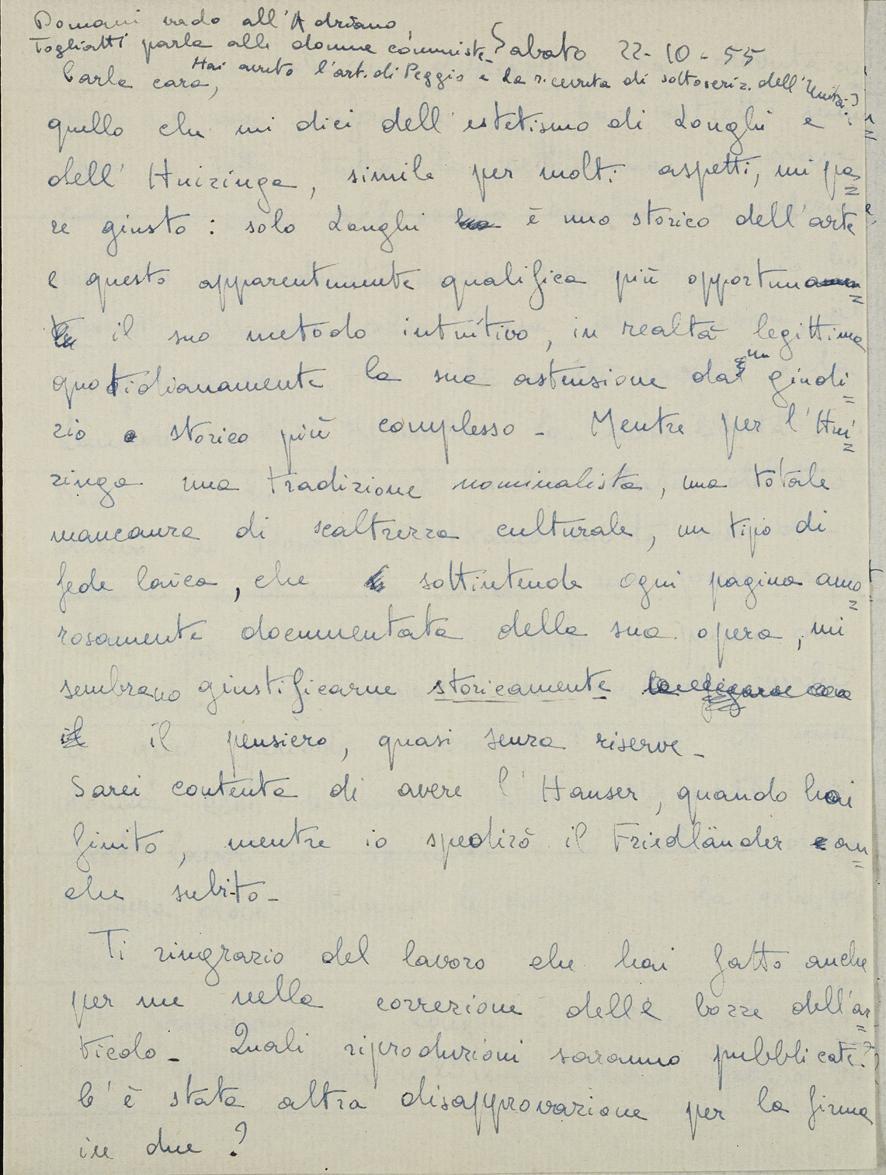 Domani vado all'Adriano,
Togliatti parla alle donne comuniste - Sabato 22-10-55
Carla cara, Hai avuto l'art. di Peggio e la ricevuta di sottoscriz. dell'Unità?
quello che mi dici dell'estetismo di Longhi e
dell'Huizinga, simile per molti aspetti, mi pa=
re giusto: solo Longhi è uno storico dell'arte
e questo apparentemente qualifica più opportuna
il suo metodo intuitivo, in realtà legittima
quotidianamente la sua astensione da un giudi=
zio storico più complesso - Mentre per l'Hui=
zinga una tradizione nominalista, una totale
mancanza di scaltrezza culturale, un tipo di
fede laica, che sottintende ogni pagina amo=
rosamente documentata della sua opera, mi
sembrano giustificarne storicamente
il pensiero, quasi senza riserve -
Sarei contenta di avere l'Hauser, quando hai
finito, mentre io spedirò il Friedländer an=
che subito -
Ti ringrazio del lavoro che hai fatto anche
per me nella correzione delle bozze dell'ar=
ticolo - Quali riproduzioni saranno pubblicate?
C'è stata altra disapprovazione per la firma
in due?